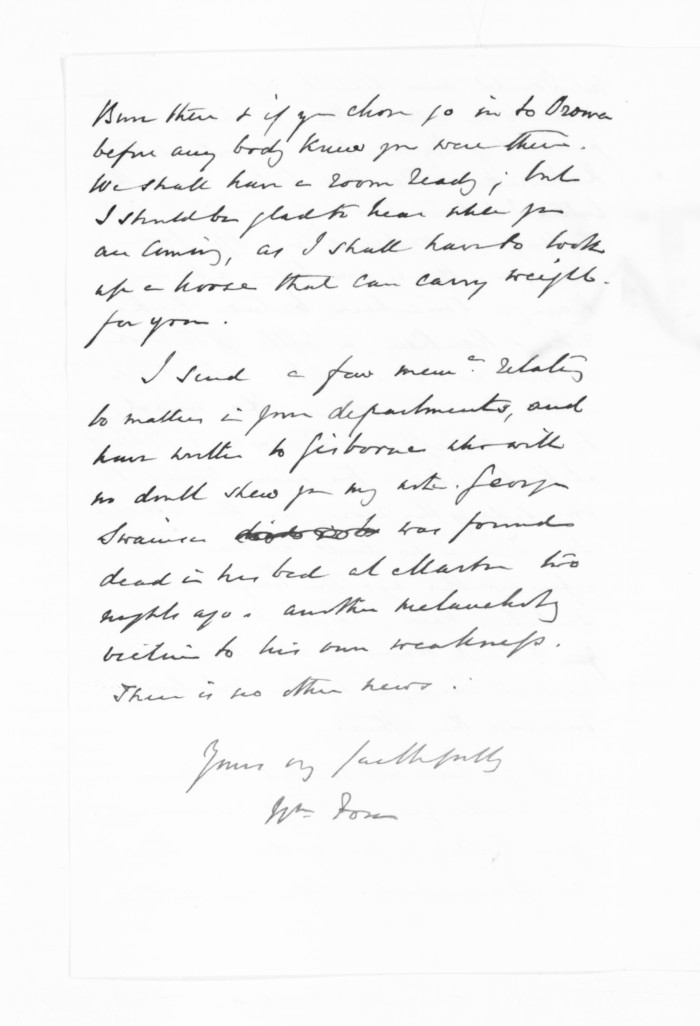 there & if you chose go in to Oroua
before any body knew you were there.
We shall have a room ready; but
I should be glad to hear when you
are coming, as I shall have to look
up a horse that can carry weight
for you.
I send a few mema. relating
to matters in your departments, and
have written to Gisborne who will
no doubt shew you my note. George
Swainson was found
dead in his bed at Marton two
nights ago. another melancholy
victim to his own weakness.
There is no other news.
Yours very faithfully
Wm Fox